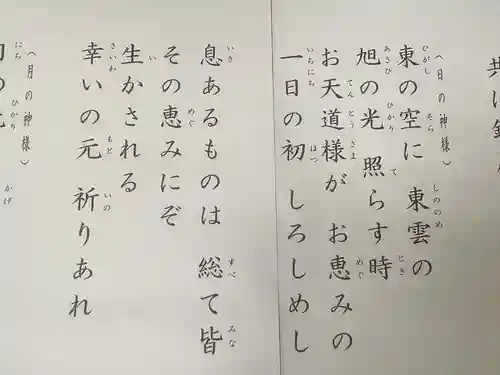 （日の神様）
東の空に 東雲の
旭の光 照らす時
お天道様が お恵みの
一日の初 しろしめし
息あるものは 総て皆
その恵みにぞ
生かされる
幸いの元 祈りあれ
（月の神様）